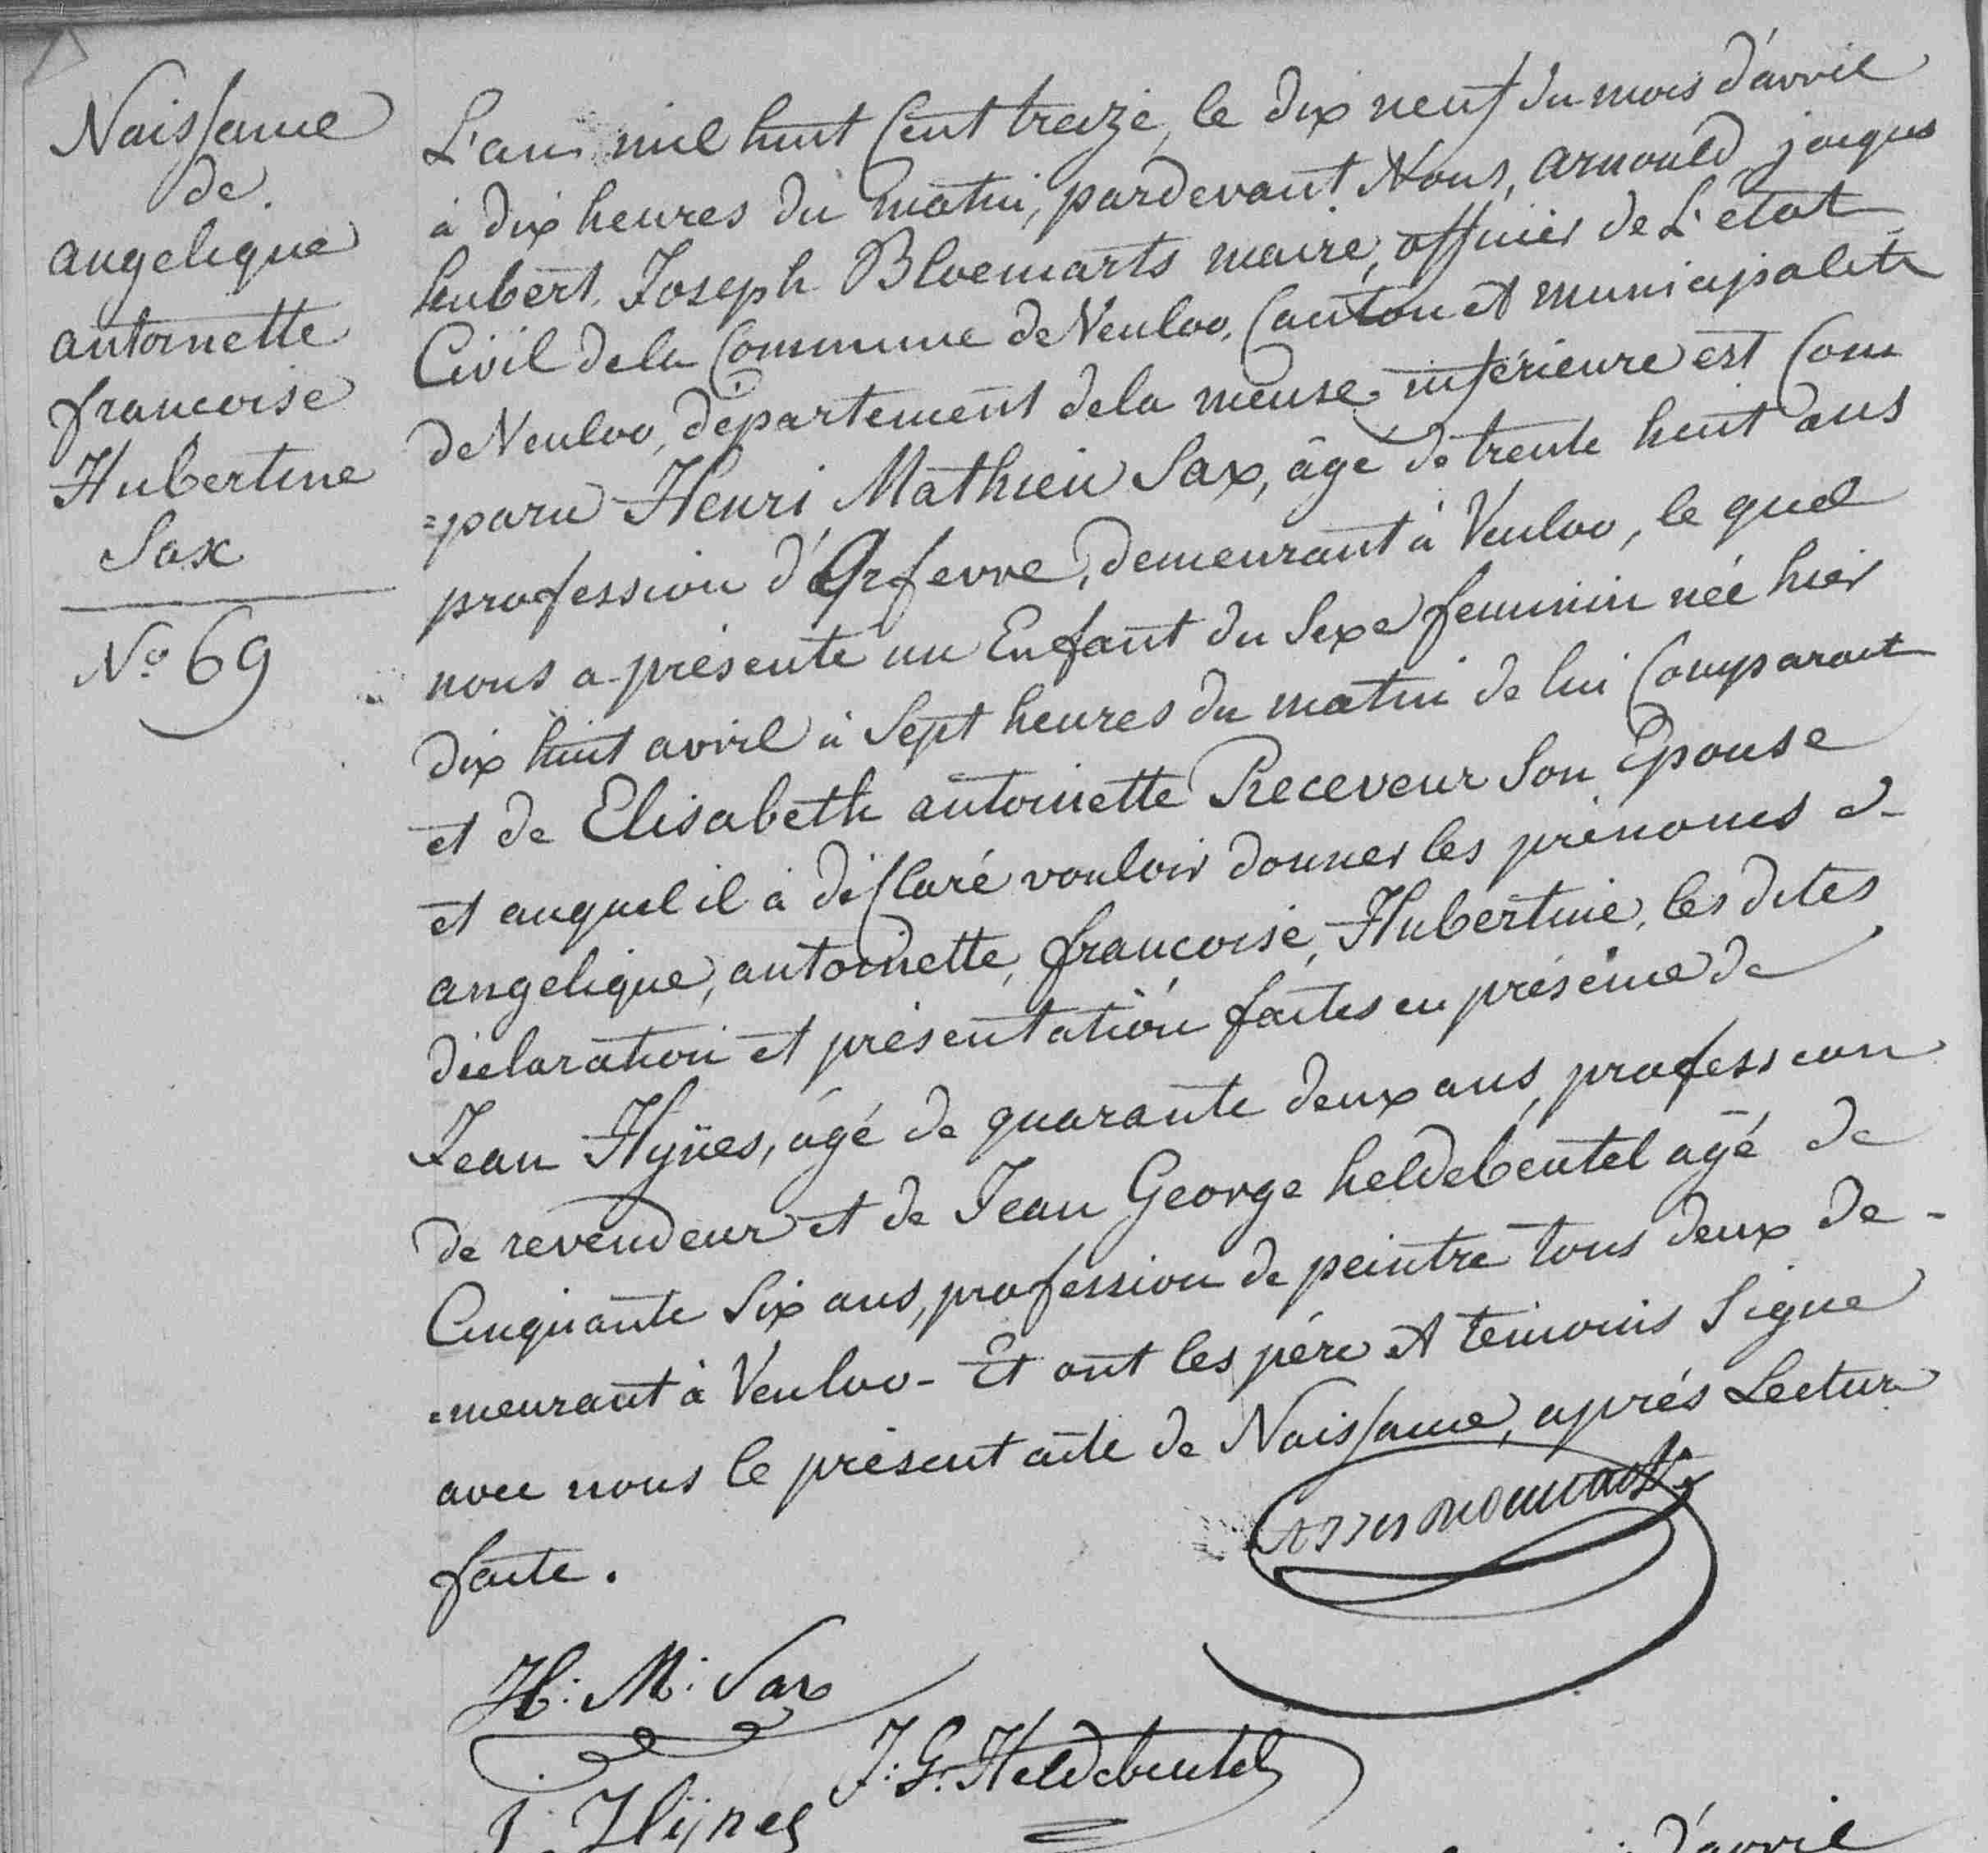 Naissance
de
angelique
antoinette
francoise
Hubertine
Sax
No 69
L'an mil huit Cent treize, le dix neuf du mois d'avril
à dix heures du matin, pardevant Nous, arnould jacques
hubert Joseph Bloemarts maire, officier de L'état
Civil de la Commune de Venloo, Canton et municipalité
de Venloo, département de la meuse inférieure est Com
=paru Henri Mathieu Sax, âgé de trente huit ans
profession d'Orfevre, demeurant à Venloo, le quel
nous a présenté un Enfant du Sexe feminin née hier
dix huit avril à Sept heures du matin de lui Comparant
et de Elisabeth antoinette Receveur Son Epouse
et auquel il à déclaré vouloir donner les prénoms d-
angelique, antoinette, francoise, Hubertine, les dites
déclaration et présentation faites en présence de
Jean Hynes, âgé de quarante deux ans, profession
de revendeur et de Jean George heldebeutel agé de
Cinquante Six ans, profession de peintre tous deux de-
=meurant à Venloo - Et ont les père et témoins Signé
avec nous le présent acte de Naissance, aprés Lectur
faite.
H: M: Sax
J: G: Heldebeutel
J: Hijnes
d'avril